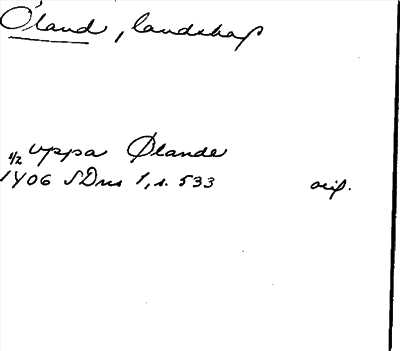 Öland, landskap
uppa Ølande
1/2 1406 SDns 1, s. 533 orig.